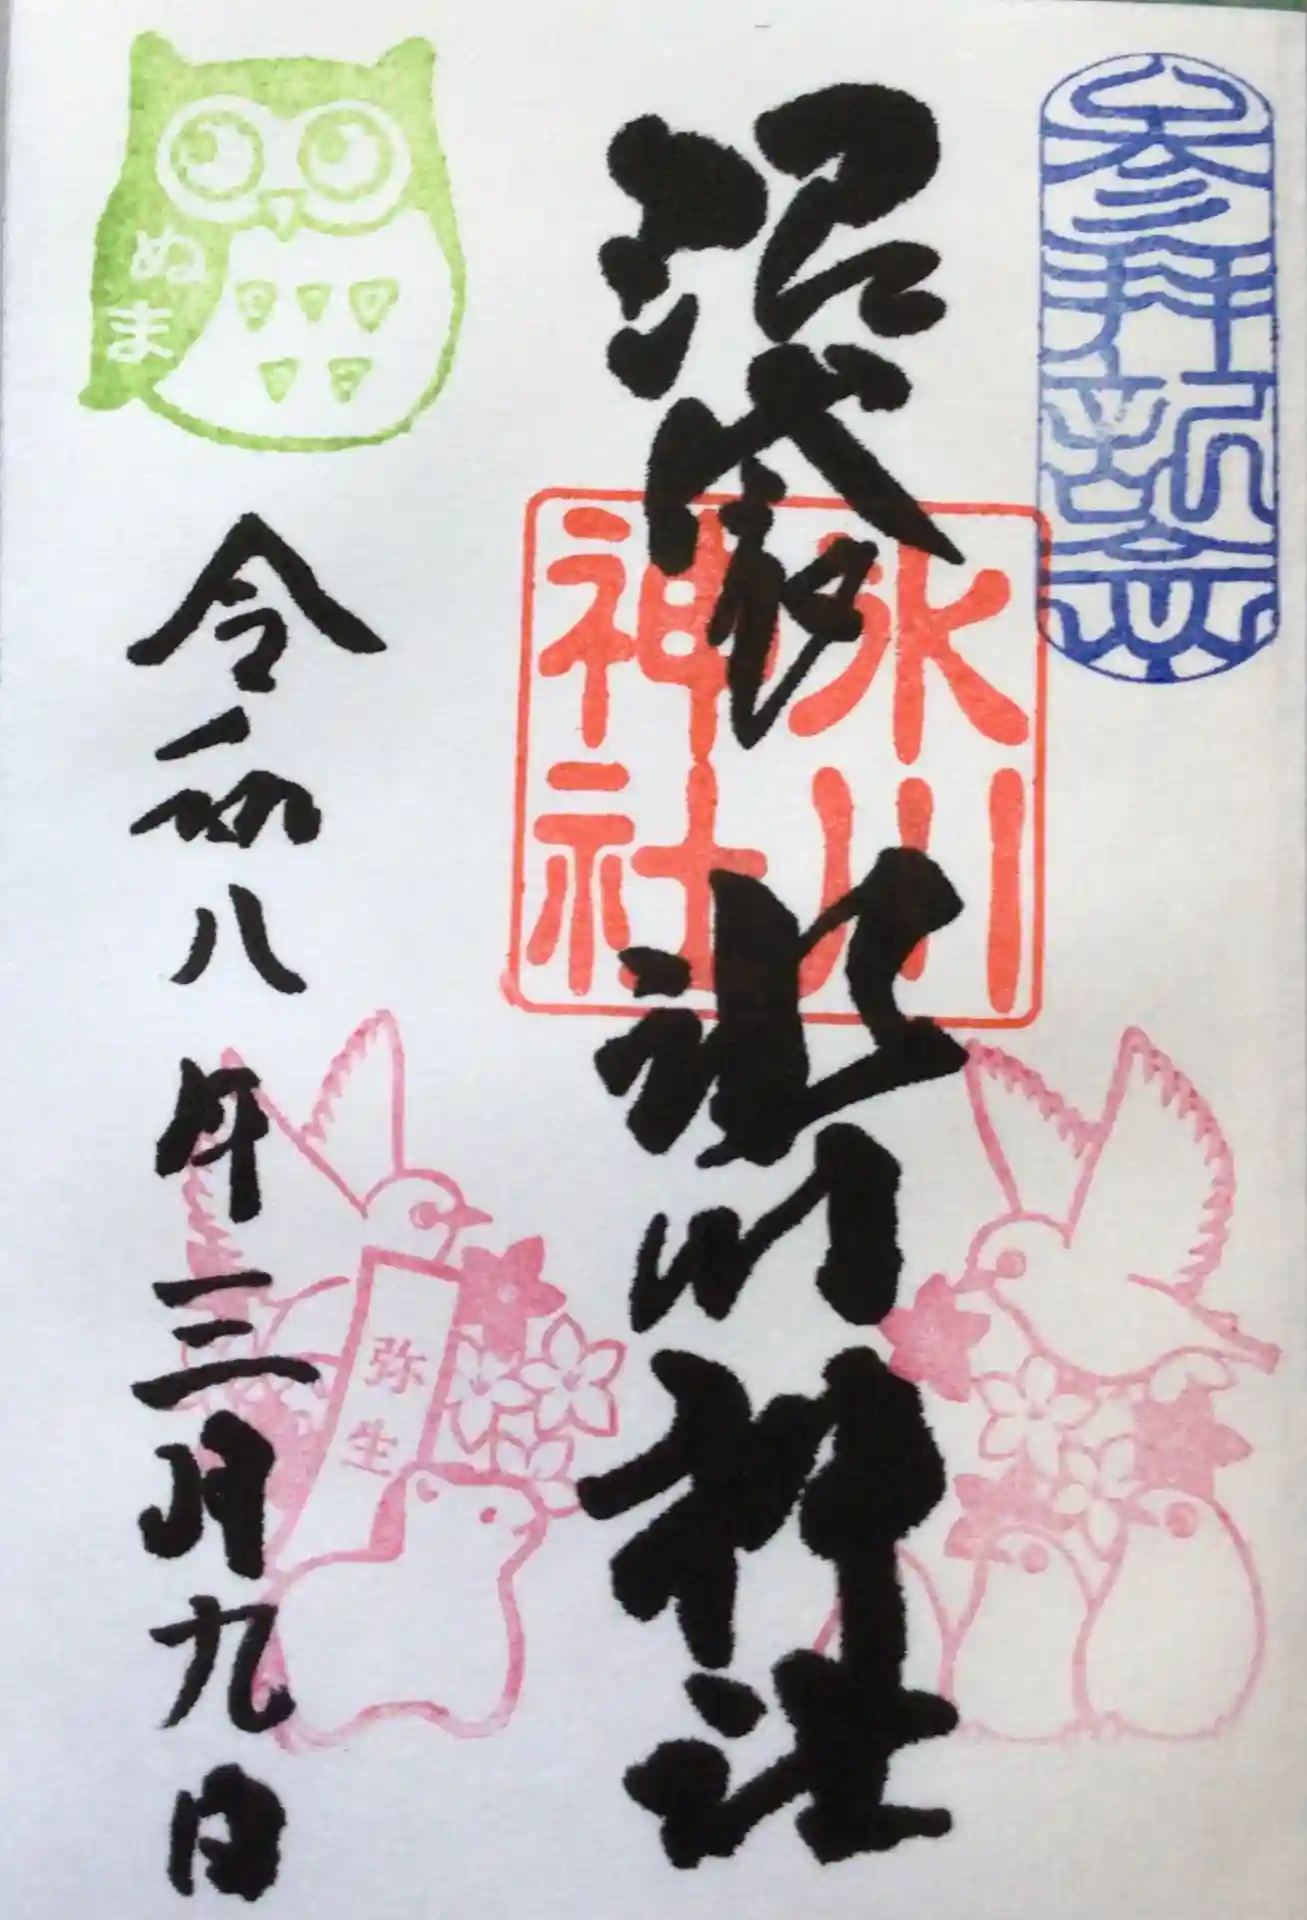 参拝記念
沼袋氷川神社
氷川
神社
ぬま
令和八年三月九日
弥生